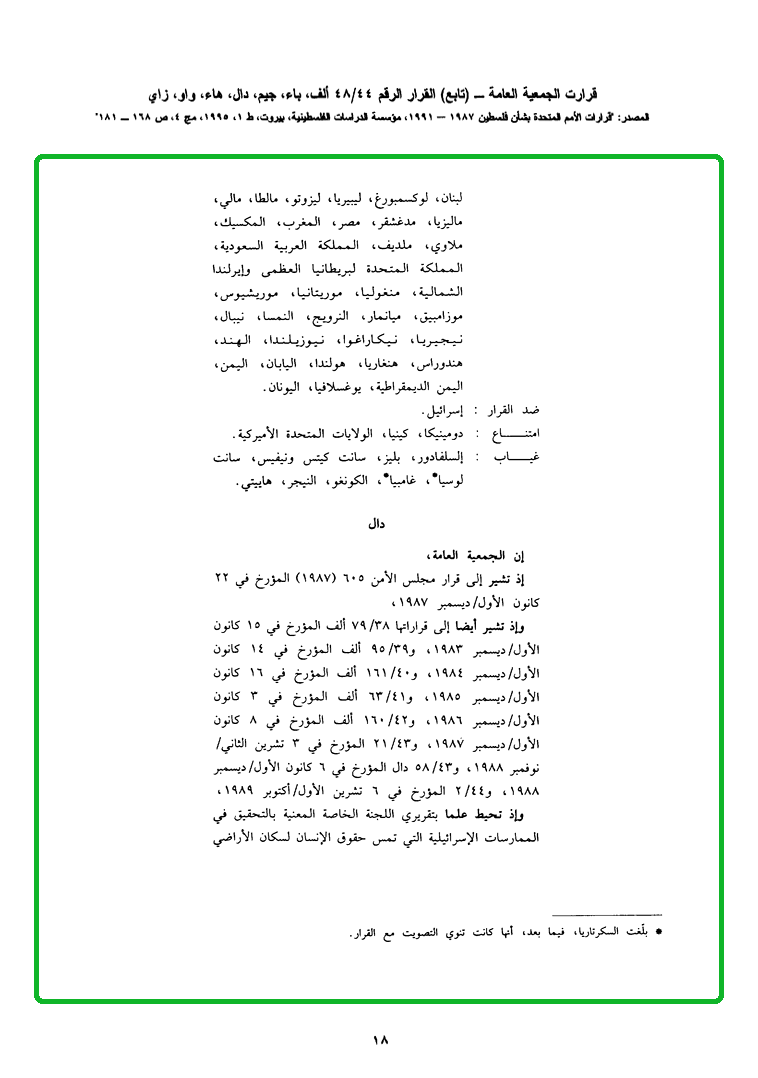 قرارت الجمعية العامة ــ (تابع) القرار الرقم ٤٨/٤٤ ألف، باء، جيم، دال، هاء، واو، زاي
المصدر: "قرارات الأمم المتحدة بشأن فلسطين ١٩٨٧ – ١٩٩١، مؤسسة الدراسات الفلسطينية، بيروت، ط ١، ١٩٩٥، مج ٤، ص ١٦٨ ــ ١٨١"
لبنان، لوكسمبورغ، ليبيريا، ليزوتو، مالطا، مالي،
ماليزيا، مدغشقر، مصر، المغرب، المكسيك،
ملاوي، ملديف، المملكة العربية السعودية،
المملكة المتحدة لبريطانيا العظمى وإيرلندا
الشمالية، منغوليا، موريتانيا، موريشيوس،
موزامبيق، ميانمار، النرويج، النمسا، نيبال،
نيجيريا، نيكاراغوا، نيوزيلندا، الهند،
هندوراس، هنغاريا، هولندا، اليابان، اليمن،
اليمن الديمقراطية، يوغسلافيا، اليونان.
ضد القرار : إسرائيل.
امتنــــاع : دومينيكا، كينيا، الولايات المتحدة الأميركية.
غيــــاب : إلسلفادور، بليز، سانت كيتس ونيفيس، سانت
لوسيا*، غامبيا*، الكونغو، النيجر، هاييتي.
دال
إن الجمعية العامة،
إذ تشير إلى قرار مجلس الأمن ٦٠٥ (١٩٨٧) المؤرخ في ٢٢
كانون الأول/ديسمبر ١٩٨٧،
وإذ تشير أيضا إلى قراراتها ٧٩/٣٨ ألف المؤرخ في ١٥ كانون
الأول/ديسمبر ١٩٨٣، و٩٥/٣٩ ألف المؤرخ في ١٤ كانون
الأول/ديسمبر ١٩٨٤، و١٦١/٤٠ ألف المؤرخ في ١٦ كانون
الأول/ديسمبر ١٩٨٥، و٦٣/٤١ ألف المؤرخ في ٣ كانون
الأول/ديسمبر ١٩٨٦، و١٦٠/٤٢ ألف المؤرخ في ٨ كانون
الأول/ديسمبر ١٩٨٧، و٢١/٤٣ المؤرخ في ٣ تشرين الثاني/
نوفمبر ١٩٨٨، و٥٨/٤٣ دال المؤرخ في ٦ كانون الأول/ديسمبر
١٩٨٨، و٢/٤٤ المؤرخ في ٦ تشرين الأول/أكتوبر ١٩٨٩،
وإذ تحيط علما بتقريري اللجنة الخاصة المعنية بالتحقيق في
الممارسات الإسرائيلية التي تمس حقوق الإنسان لسكان الأراضي
* بلّغت السكرتاريا، فيما بعد، أنها كانت تنوي التصويت مع القرار.
١٨